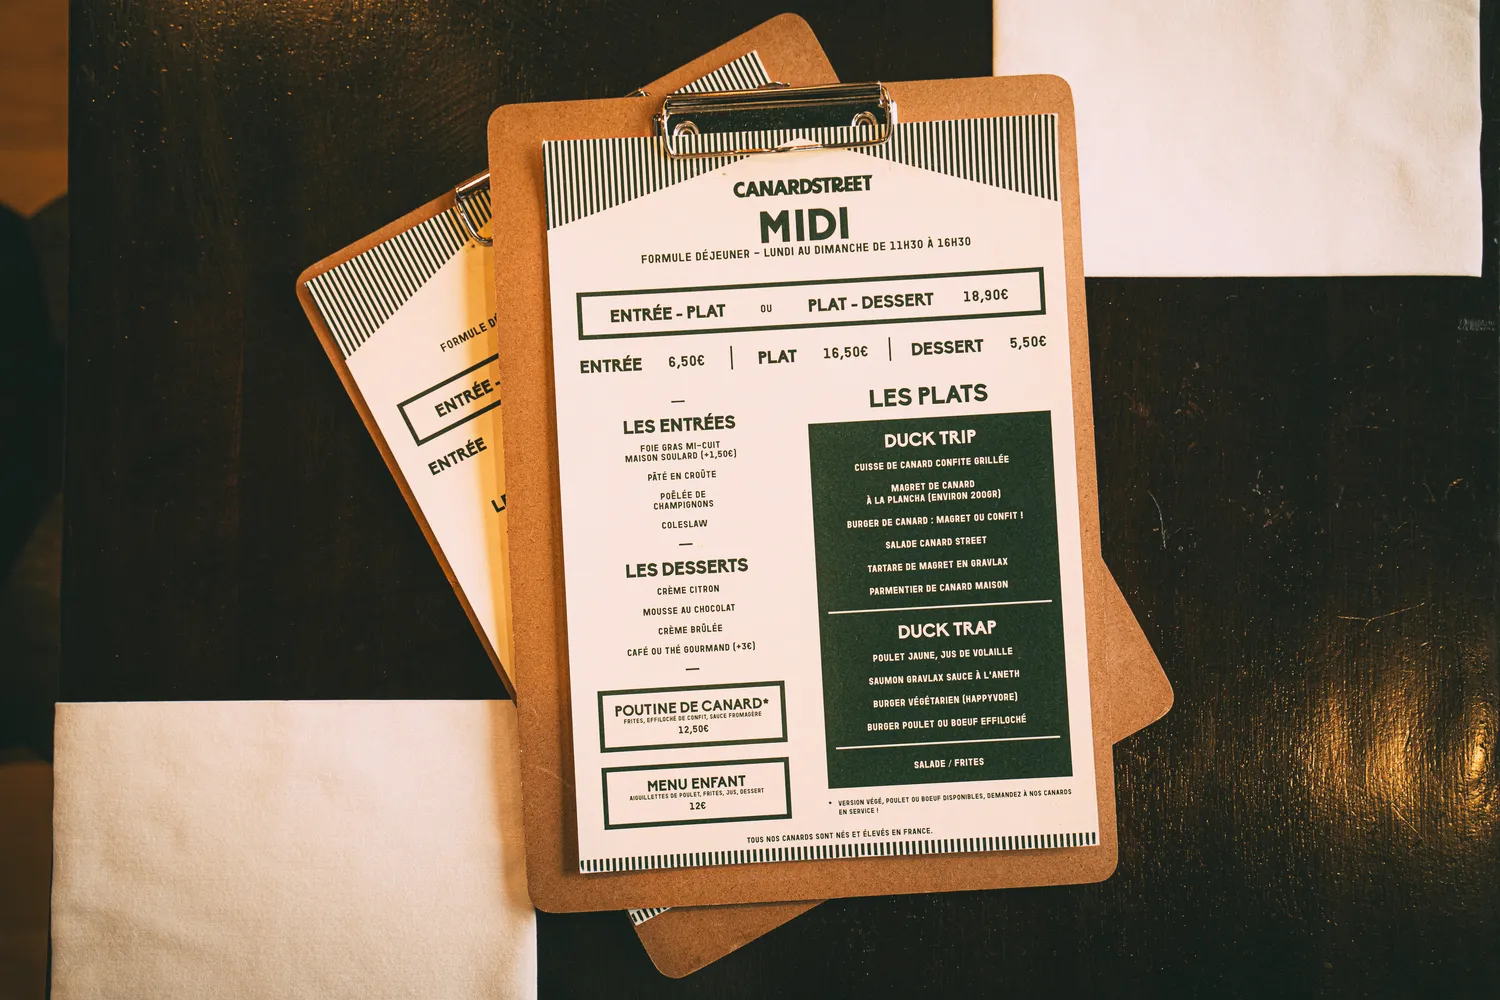 CANARDSTREET
MIDI
FORMULE DÉJEUNER – LUNDI AU DIMANCHE DE 11H30 À 16H30
ENTRÉE - PLAT OU PLAT - DESSERT 18,90€
ENTRÉE 6,50€ | PLAT 16,50€ | DESSERT 5,50€
LES ENTRÉES
FOIE GRAS MI-CUIT
MAISON SOULARD (+1,50€)
PÂTÉ EN CROÛTE
POÊLÉE DE
CHAMPIGNONS
COLESLAW
LES DESSERTS
CRÈME CITRON
MOUSSE AU CHOCOLAT
CRÈME BRÛLÉE
CAFÉ OU THÉ GOURMAND (+3€)
POUTINE DE CANARD*
FRITES, EFFILOCHÉ DE CONFIT, SAUCE FROMAGÈRE
12,50€
MENU ENFANT
AIGUILLETTES DE POULET, FRITES, JUS, DESSERT
12€
LES PLATS
DUCK TRIP
CUISSE DE CANARD CONFITE GRILLÉE
MAGRET DE CANARD
À LA PLANCHA (ENVIRON 200GR)
BURGER DE CANARD : MAGRET OU CONFIT !
SALADE CANARD STREET
TARTARE DE MAGRET EN GRAVLAX
PARMENTIER DE CANARD MAISON
DUCK TRAP
POULET JAUNE, JUS DE VOLAILLE
SAUMON GRAVLAX SAUCE À L'ANETH
BURGER VÉGÉTARIEN (HAPPYVORE)
BURGER POULET OU BOEUF EFFILOCHÉ
SALADE / FRITES
* VERSION VÉGÉ, POULET OU BOEUF DISPONIBLES, DEMANDEZ À NOS CANARDS
EN SERVICE !
TOUS NOS CANARDS SONT NÉS ET ÉLEVÉS EN FRANCE.
FORMULE
ENTRÉE -
ENTRÉE